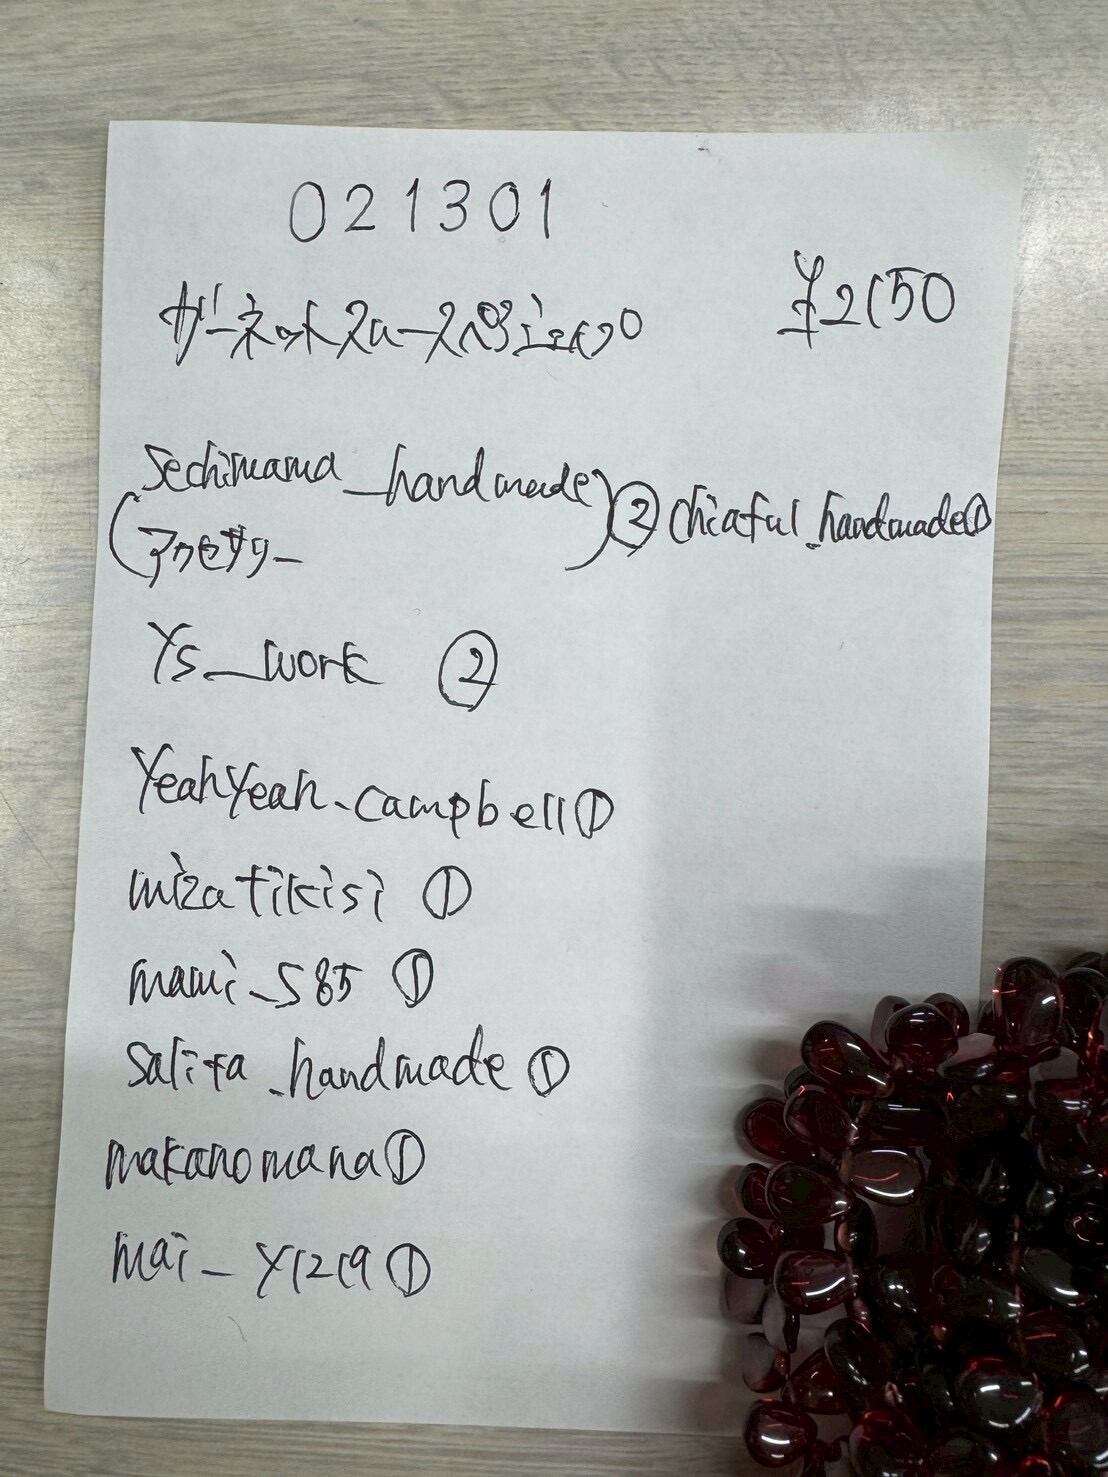 021301
ガーネットスムースペア
¥2150
sechimama_handmade
(アクセサリー) ② chiaful_handmade①
Ys_work ②
YeahYeah-campbell①
mizatikisi ①
mami_s85 ①
salira_handmade ①
makanomana①
mai_y1219①